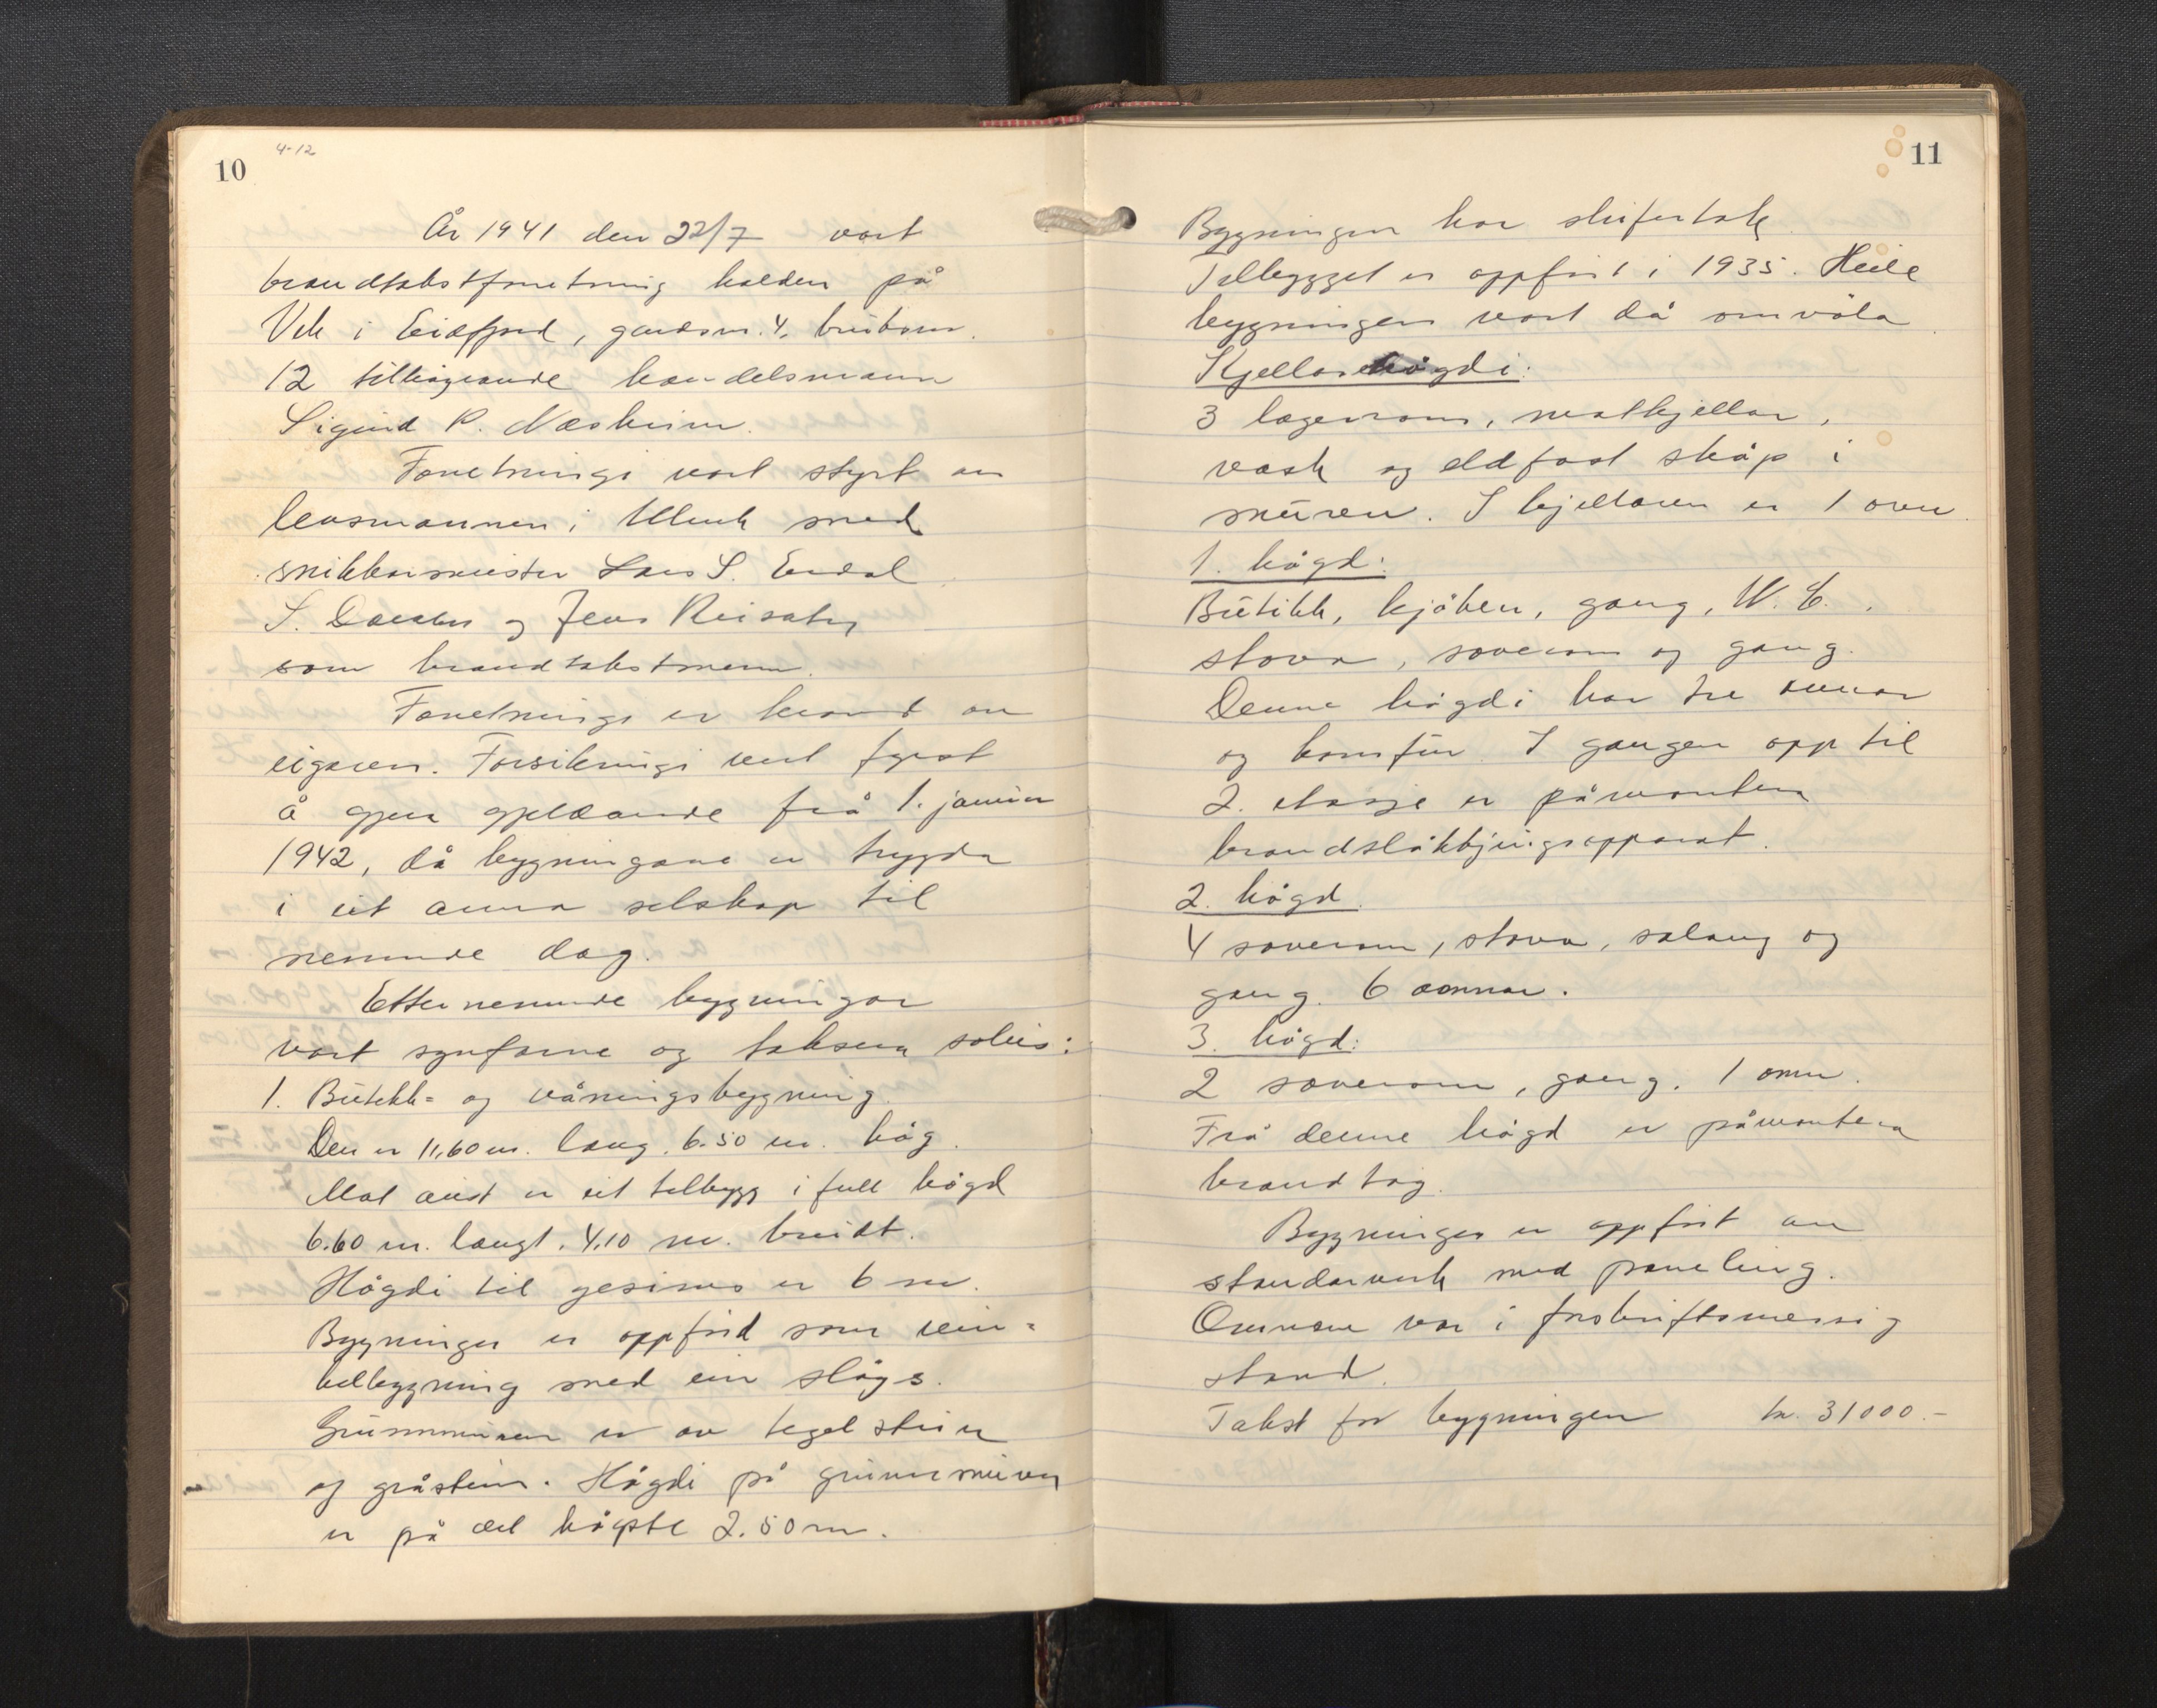 10
4-12
År 1941 den 22/7 vart
brandtakstforretning halden på
Vik i Eidfjord, gardsnr. 4, bruksnr.
12 tilhøyrande handelsmann
Sigurd K. Næsheim.
Forretningi vart styrt av
lensmannen i Ulvik med
snikkarmeister Lars S. Erdal
S. og Jens Reisæter
som brandtakstmenn.
Forretningi er kravd av
eigaren. Forsikringi vert fyrst
å gjera gjeldande frå 1. januar
1942, då bygningane er trygda
i eit anna selskap til
nemnde dag.
Etternemnde bygningar
vart synfarne og taksera soleis:
1. Butikk- og våningsbygning.
Den er 11,60 m. lang, 6.50 m. høg.
Mot aust er eit tilbygg i full høgd
6.60 m. langt, 4.10 m. breidt.
Høgdi til gesims er 6 m.
Bygningen er oppførd som vin-
kelbygning med ein sløgs.
Grunnmuren er av tegelstein
og gråstein. Høgdi på grunnmuren
er på det høgste 2.50 m.
11
Bygningen har skifertak
Tilbygget er oppført i 1935. Heile
bygningen vart då omvøla.
Kjellarhøgdi:
3 lagerrom, matkjellar,
vask og eldfast skåp i
muren. I kjellaren er 1 ovn.
1. høgd:
Butikk, kjøken, gang, W.C.,
stova, soverom og gang.
Denne høgdi har tre omnar
og komfur. I gangen opp til
2. etasje er påmontera
brandsløkkjingsapparat.
2. høgd.
4 soverom, stova, salong og
gang. 6 omnar.
3. høgd:
2 soverom, gang. 1 omn.
Frå denne høgd er påmontera
brandtog.
Bygningen er oppført av
standarverk med paneling.
Omnane var i forskriftsmessig
stand.
Takst for bygningen kr. 31000.-